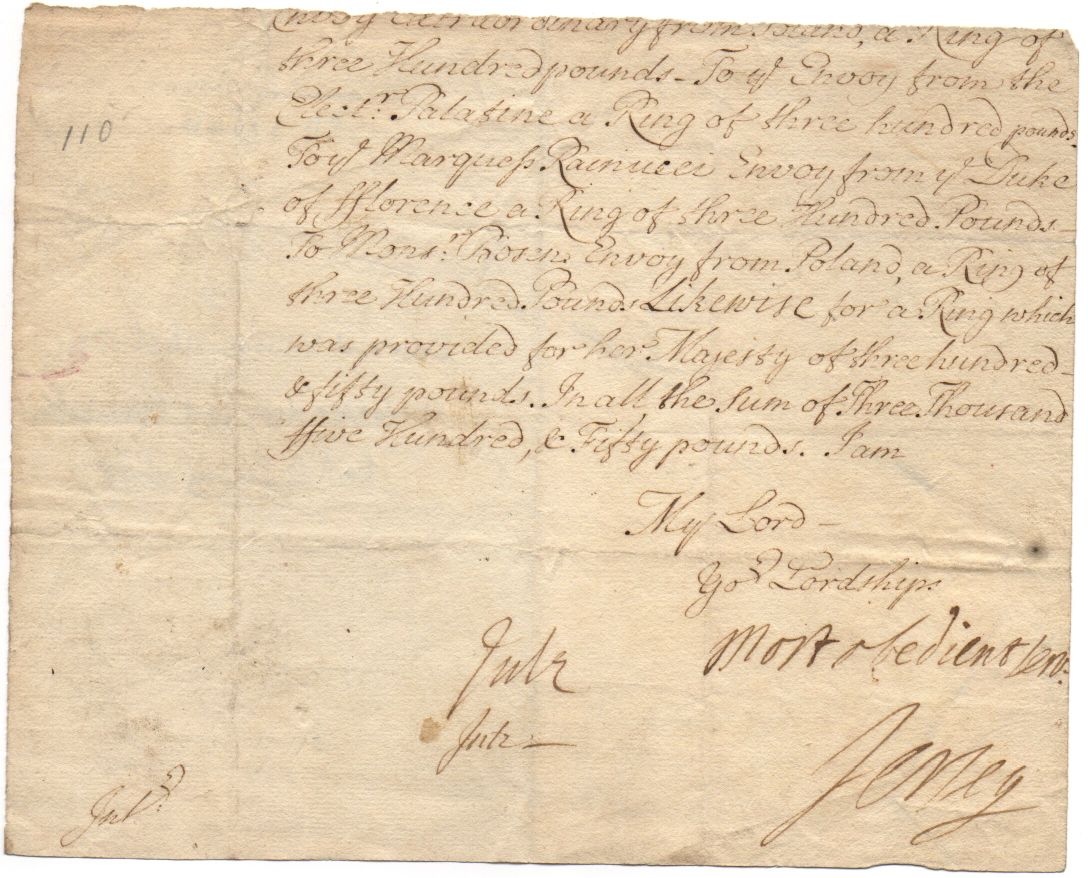 Envoy Extraordinary from Poland, a Ring of
three Hundred pounds - To yᵉ Envoy from the
Elect:ʳ Palatine a Ring of three hundred pounds.
110
To yᵉ Marquess Rainucci Envoy from yᵉ Duke
of fflorence a Ring of three Hundred Pounds
To Monsʳ: Envoy from Poland, a Ring of
three Hundred Pounds Likewise for a Ring which
was provided for her Majesty of three hundred -
& fifty pounds. In all, the Sum of Three Thousand
ffive Hundred, & Fifty pounds. I am
My Lord -
Yoʳ Lordships
Most obedient serv:
Jersey